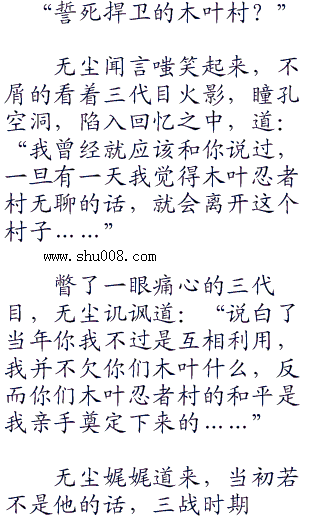 “誓死捍卫的木叶村？”
无尘闻言嗤笑起来，不
屑的看着三代目火影，瞳孔
空洞，陷入回忆之中，道：
“我曾经就应该和你说过，
一旦有一天我觉得木叶忍者
村无聊的话，就会离开这个
村子……”
www.shu008.com
瞥了一眼痛心的三代
目，无尘讥讽道：“说白了
当年你我不过是互相利用，
我并不欠你们木叶什么，反
而你们木叶忍者村的和平是
我亲手奠定下来的……”
无尘娓娓道来，当初若
不是他的话，三战时期